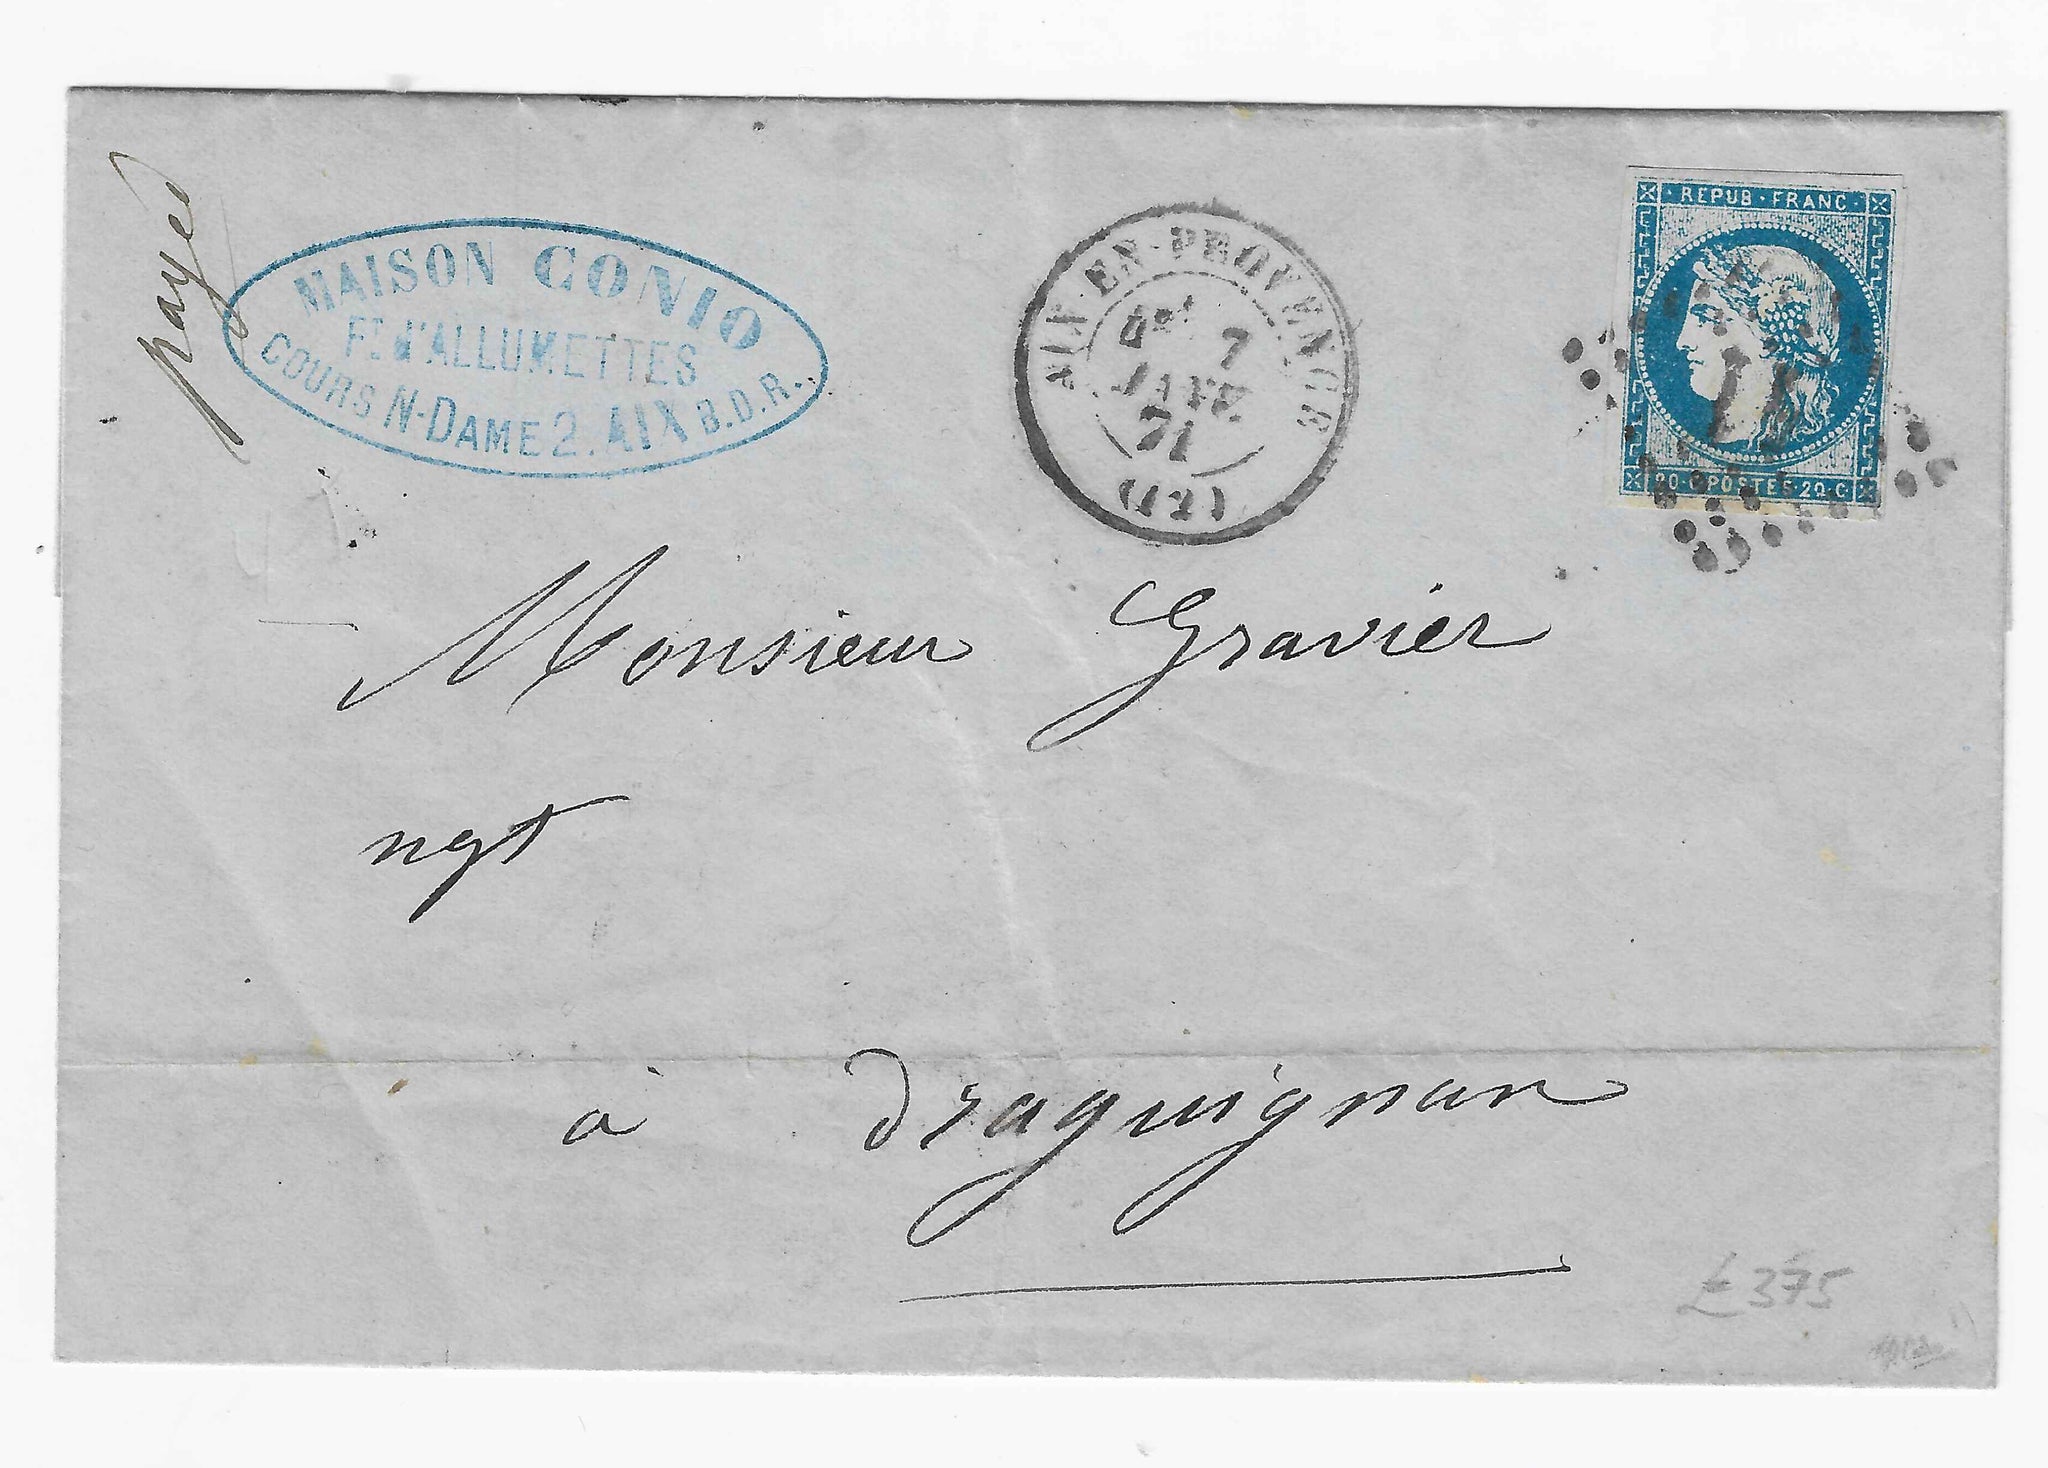 payée
MAISON CONIO
FT. D'ALLUMETTES
COURS N-DAME 2. AIX B.D.R.
AIX-EN-PROVENCE
7
JANV.
71
(12)
REPUB·FRANC·
20·C·POSTES·20·C·
Monsieur Gravier
ngt
à draguignan
£375